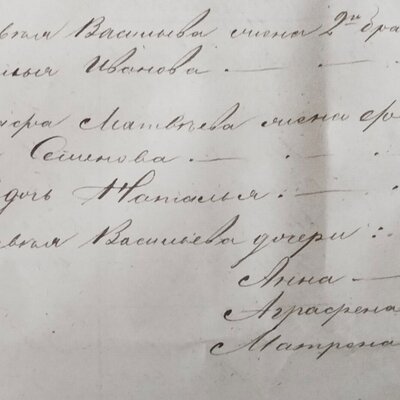 Васильева жена 2го бра
Иванова . — . —
Матвѣева жена
Семенова . — . —
дочь Наталья . —
Васильева дочери :
Анна —
Аграфена
Матрена